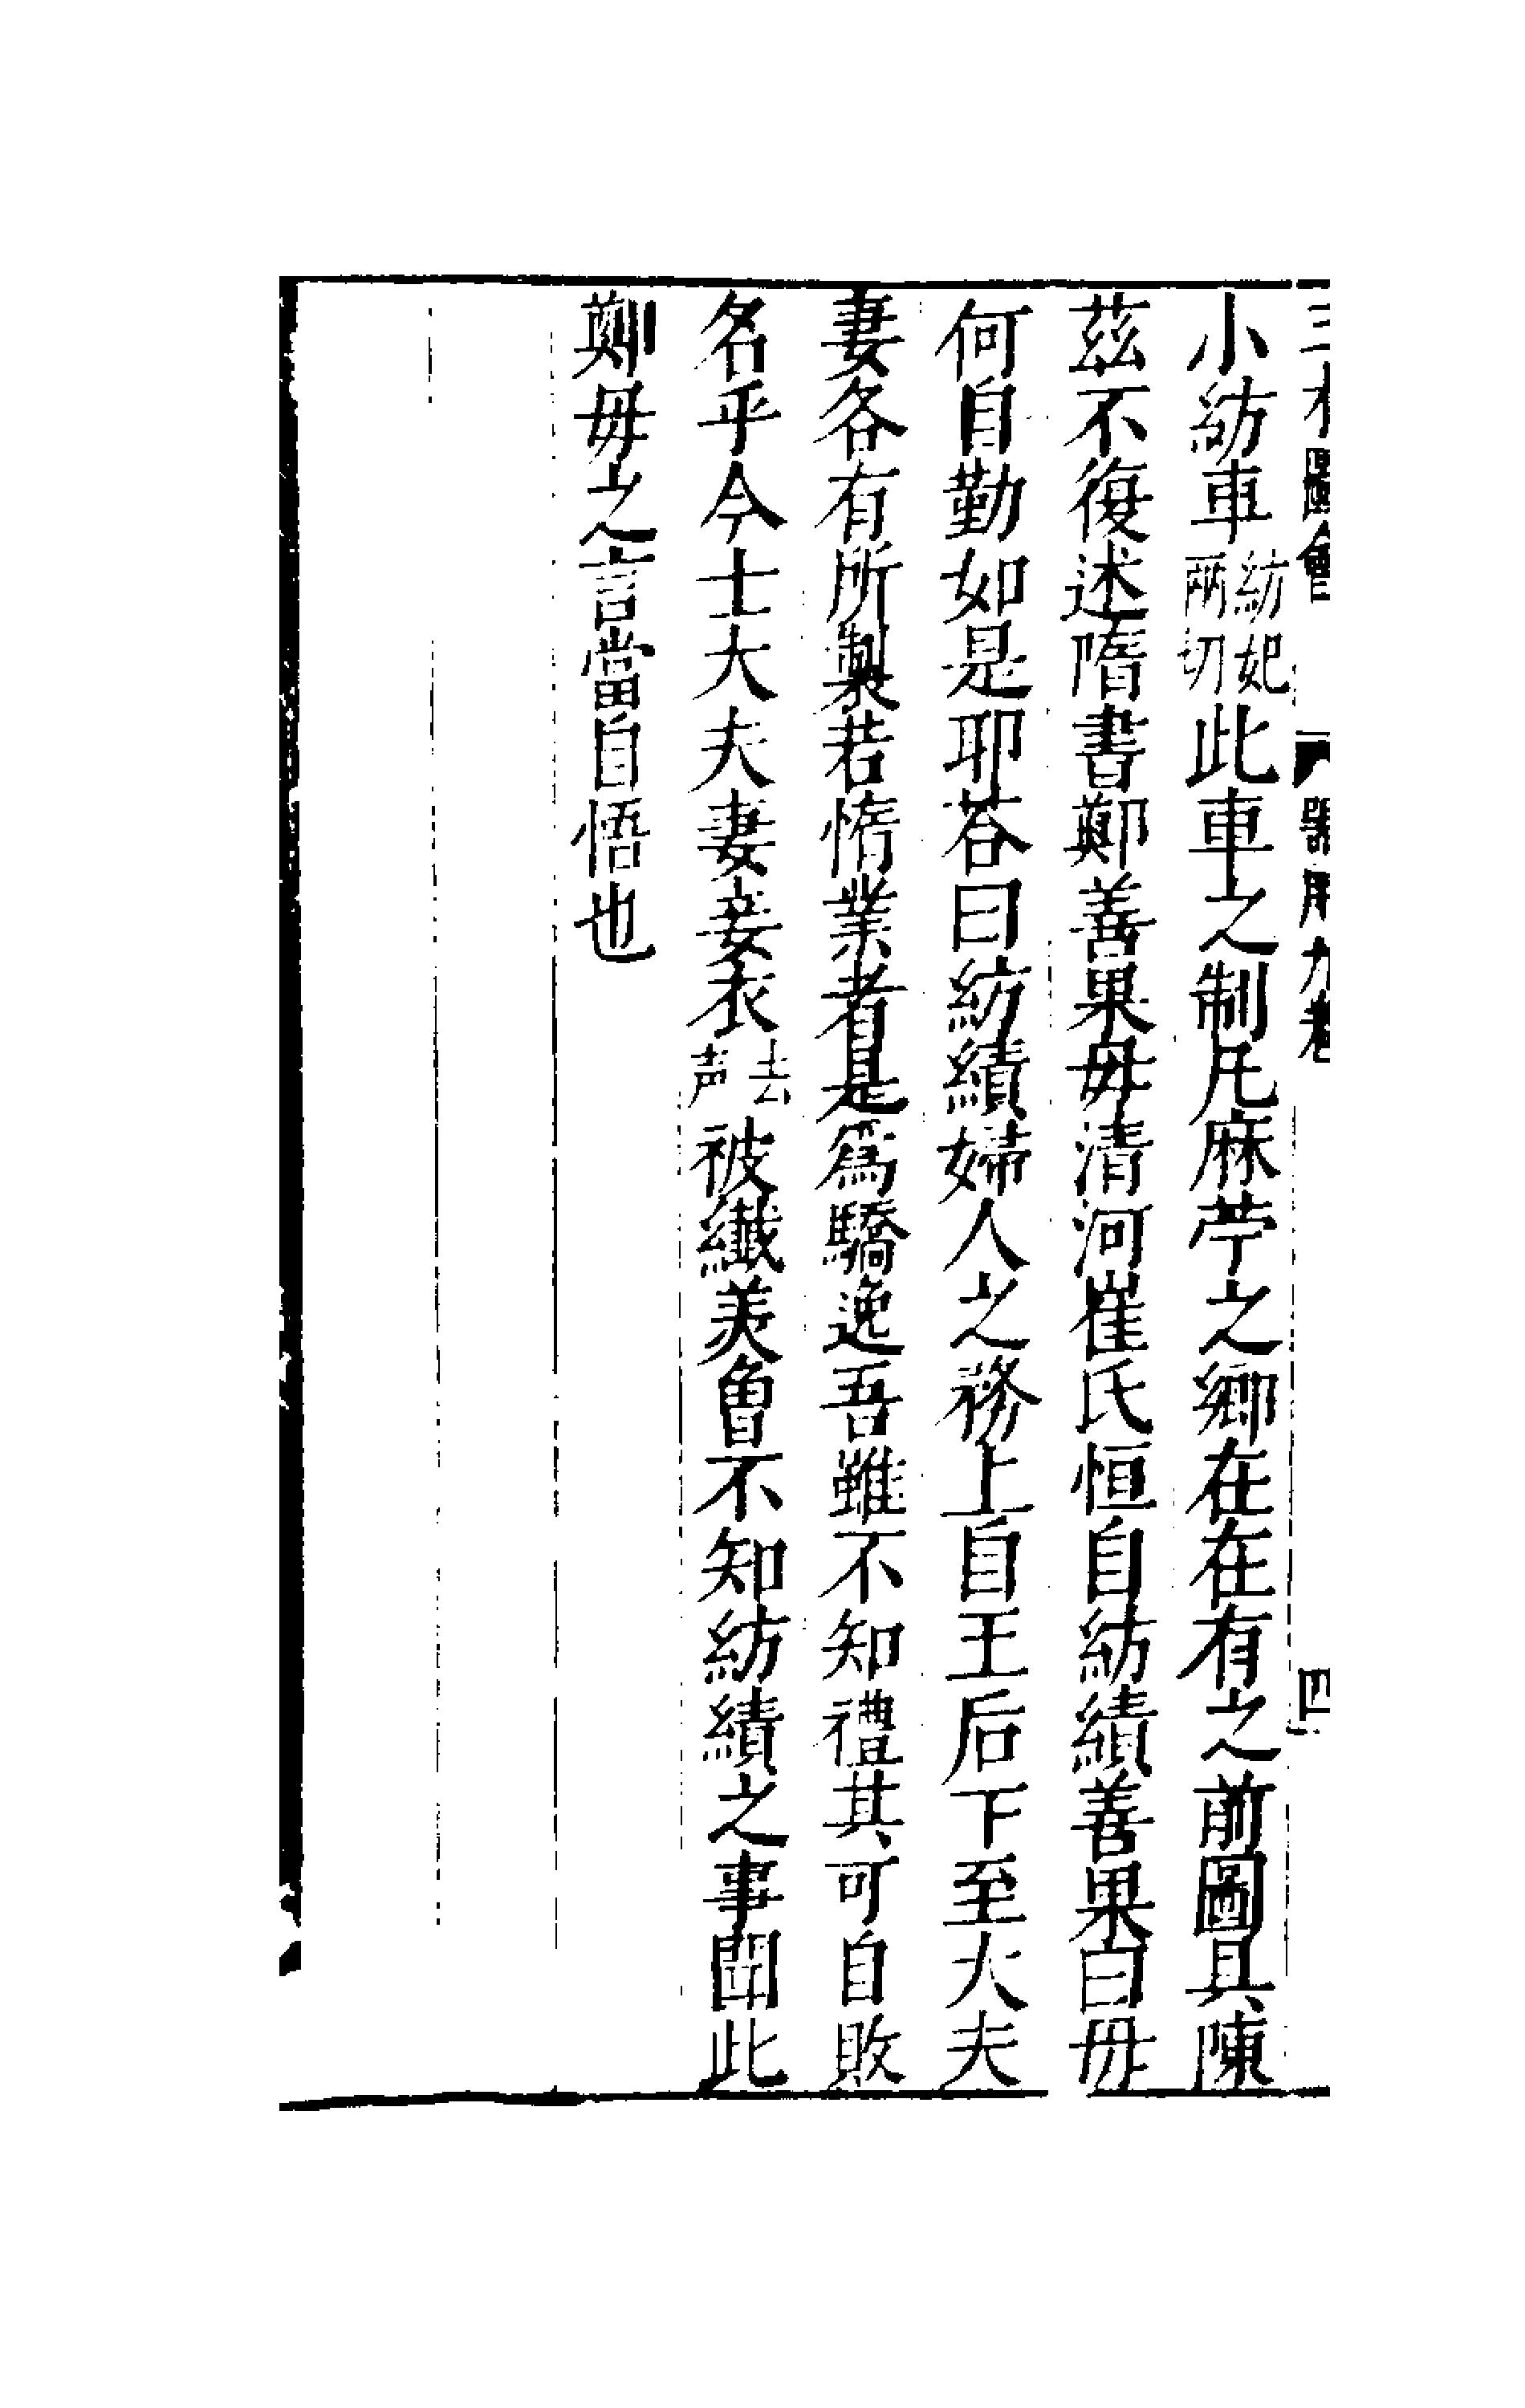 三才圖會 器用九卷 四
小紡車紡妃兩切此車之制凡麻苧之鄉在在有之前圖具陳
茲不復述隋書鄭善果母清河崔氏恒自紡績善果曰母
何自勤如是耶荅曰紡績婦人之務上自王后下至大夫
妻各有所製若惰業者是爲驕逸吾雖不知禮其可自敗
名乎今士大夫妻妾衣去声被纖美曾不知紡績之事聞此
鄭母之言當自悟也